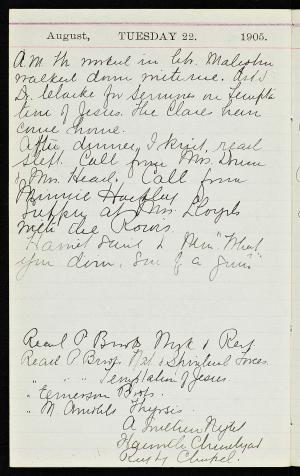 August, TUESDAY 22. 1905.
A.M. worked in Lib.
walked down with me. Ask'd
Dr. Clarke for Sermons on Tempta
tion of Jesus. The Clares
come home.
After dinner, I knit, read
slept. Call from Mrs. Drum
& Mrs. Head. Call from
Minnie
Supper at Mrs. Lloyd's
with the Rows.
Harriet said to "What
you doin, Son of a Gun"
Read P Brooks &
Read P Brooks Nat. & Spiritual Forces.
" " " Temptation of Jesus.
" Emerson
" M. Arnold's Thyrsis
A Southern Night
Haworth Churchyard
Rugby Chapel.